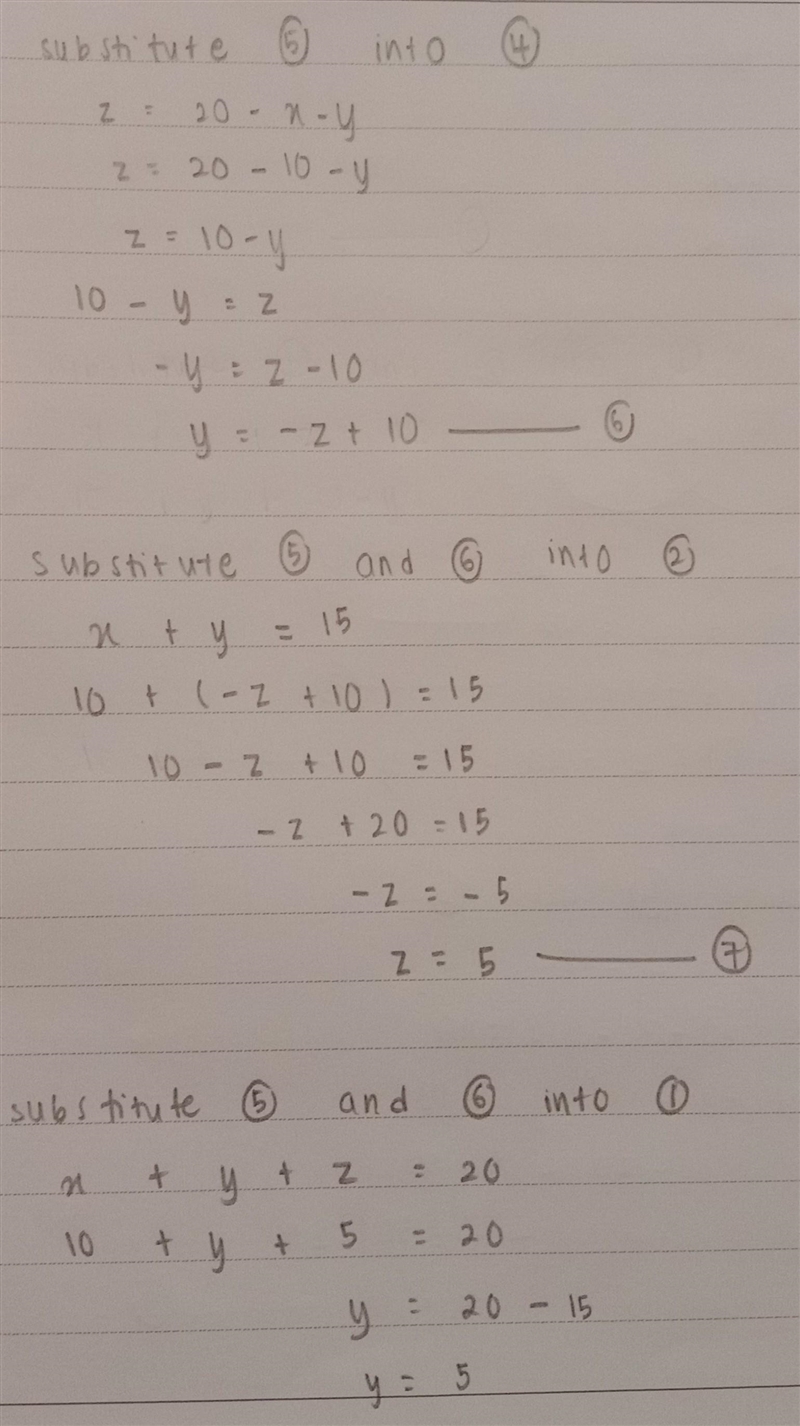 substitute ⑤ into ④
z = 20 - x - y
z = 20 - 10 - y
z = 10 - y
10 - y = z
- y = z - 10
y = - z + 10 ——— ⑥
substitute ⑤ and ⑥ into ②
x + y = 15
10 + (- z + 10) = 15
10 - z + 10 = 15
- z + 20 = 15
- z = - 5
z = 5 ——— ⑦
substitute ⑤ and ⑥ into ①
x + y + z = 20
10 + y + 5 = 20
y = 20 - 15
y = 5